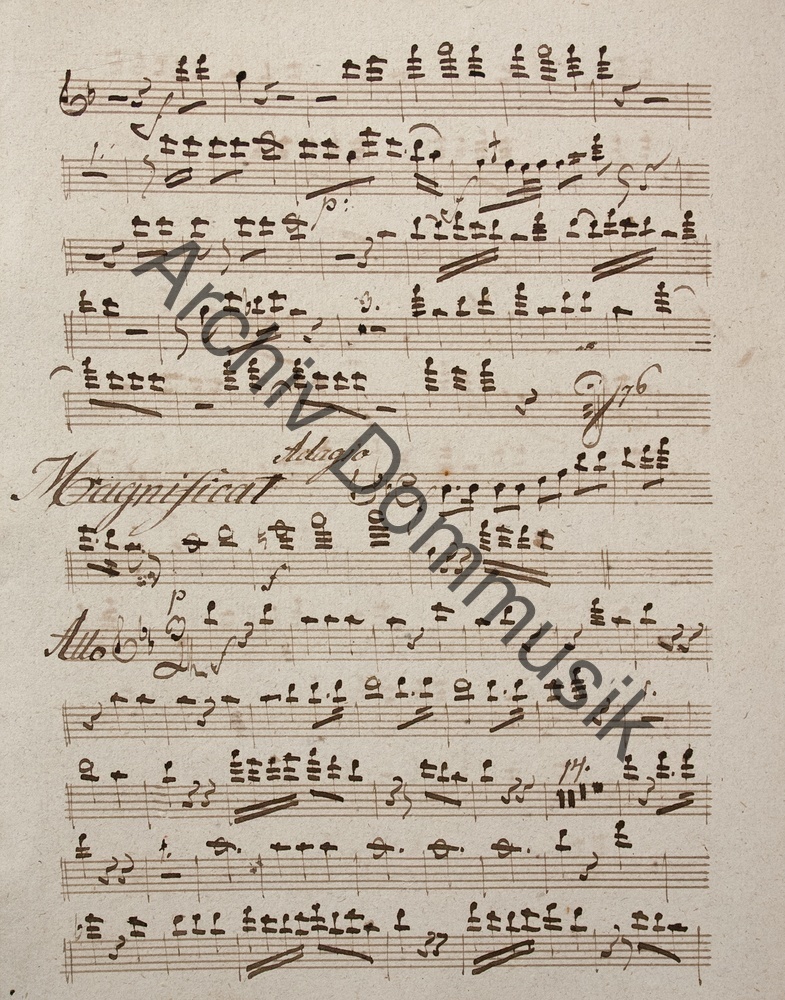 f
1.
p: f
3.
176
Adagio
Magnificat
p f
Allo
14.
Archiv Dommusik